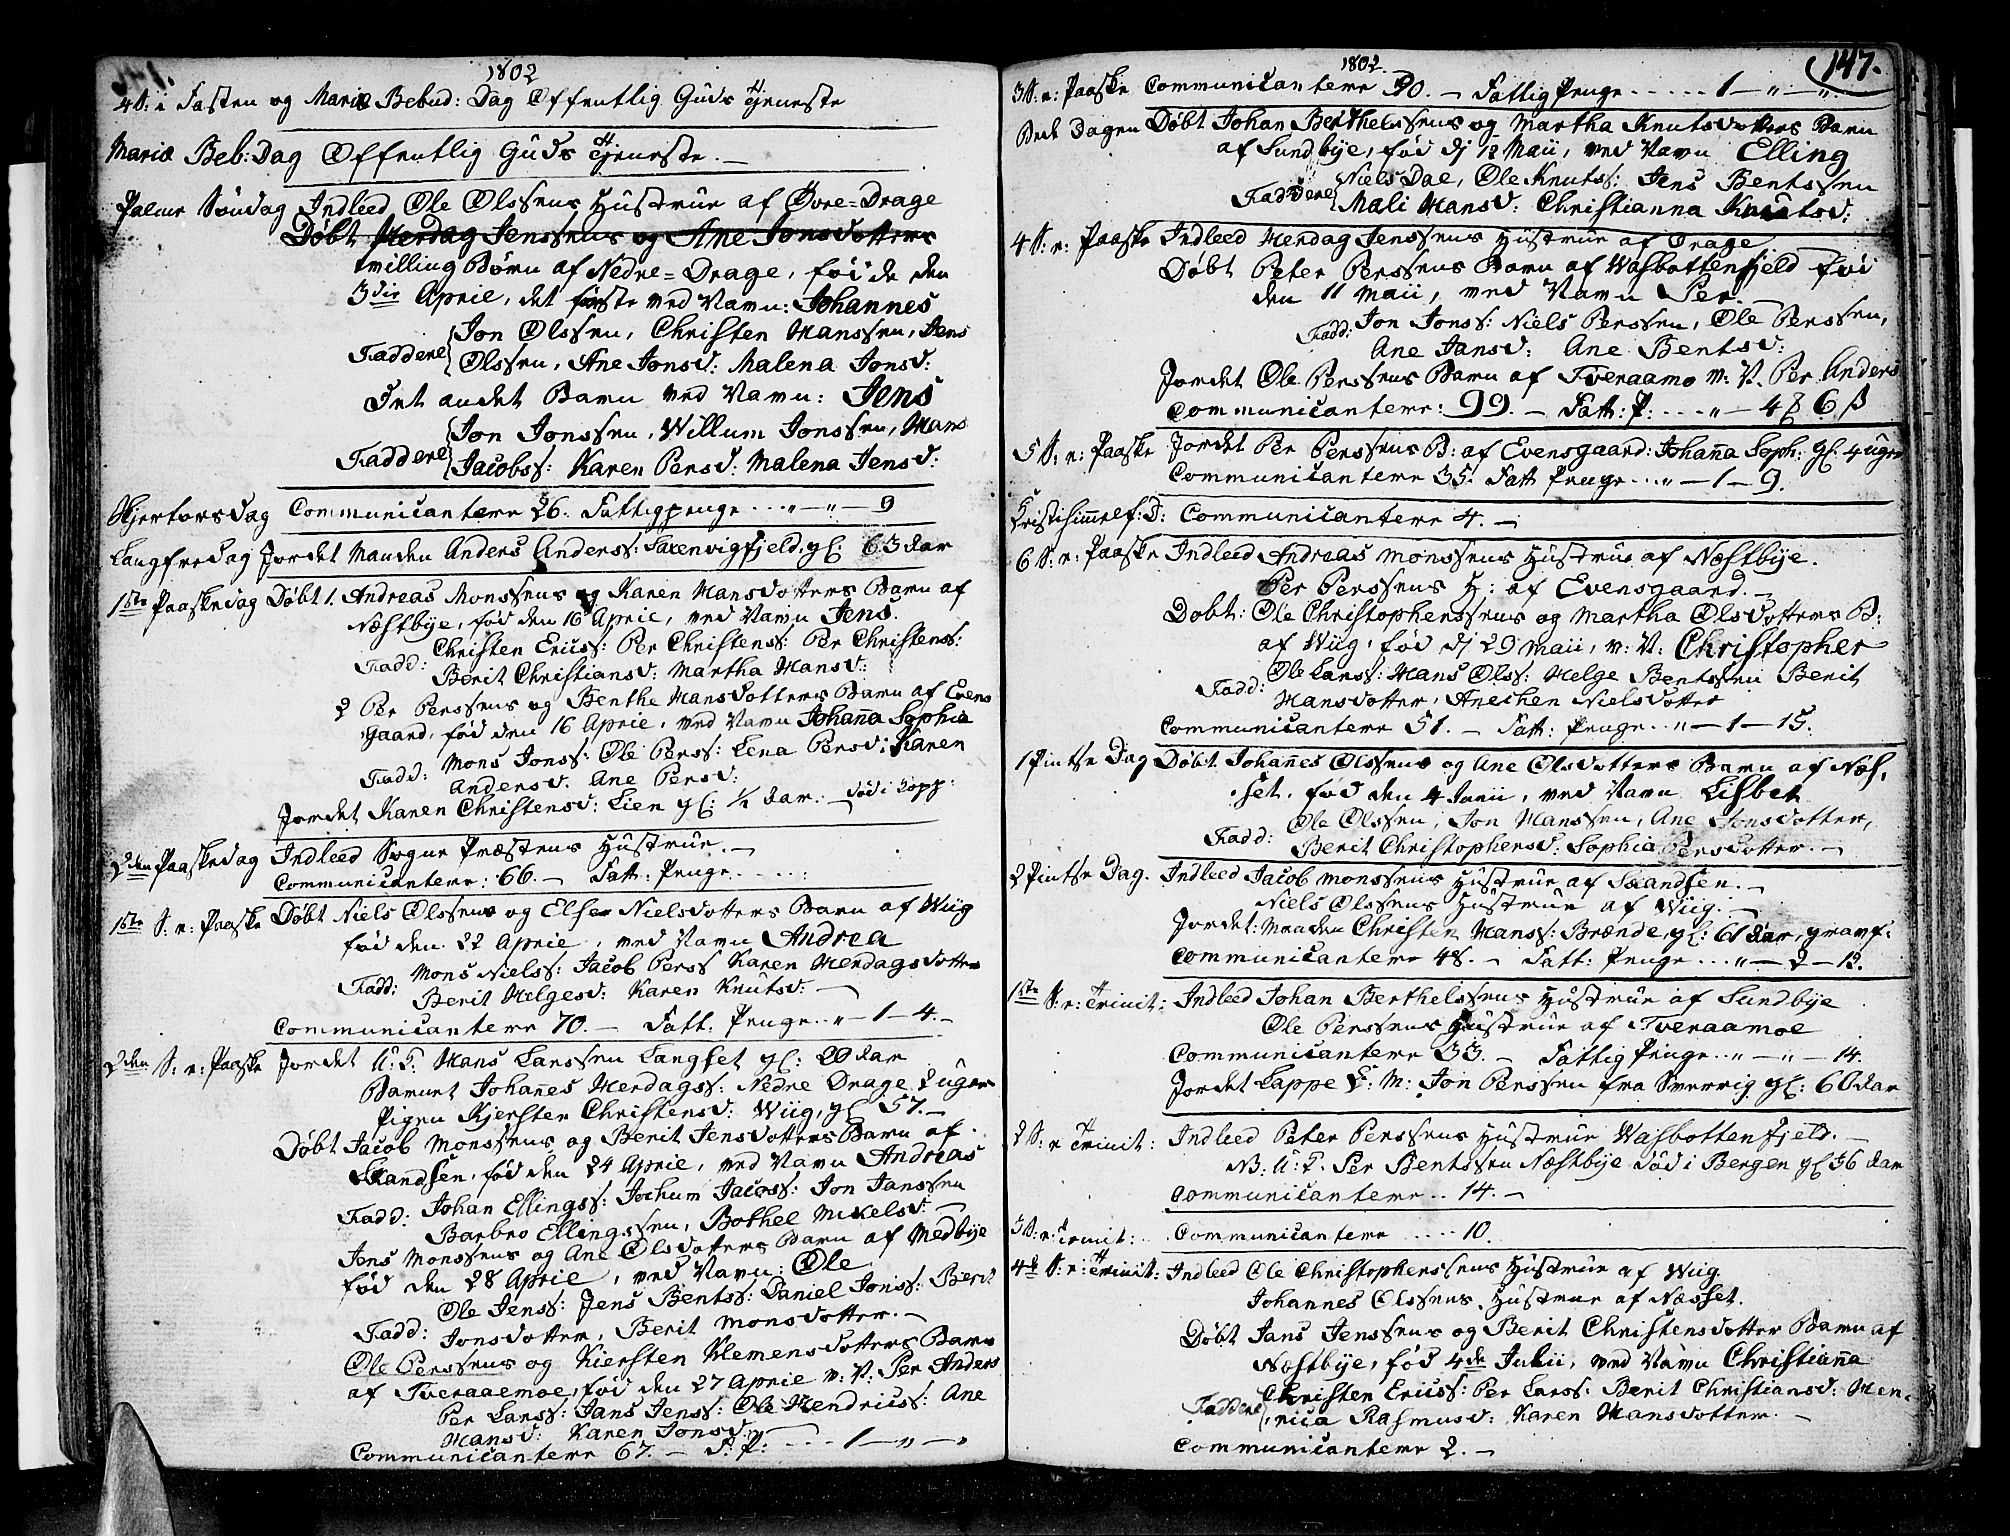 1802
4 S: i Fasten og Mariæ Bebud: Dag Offentlig Guds Tjeneste
Mariæ Beb: Dag Offentlig Guds Tjeneste. —
Palme Søndag Indleed Ole Olssens Hustrue af Øvre=Drage
Døbt Merdag Jenssens og Ane Jonsdotters
tvilling Børn af Nedre=Drage, føde den
3die Aprile, det første ved Navn: Johannes
Faddere Jon Olssen, Christen Hanssen, Jens
Olssen, Ane Jonsd: Malena Jonsd:
Det andet Barn ved Navn: Jens
Faddere Jon Jonssen, Willum Jonssen, Hans
Jacobss: Karen Persd: Malena Jensd:
Skjertorsdag Communicantere 26. Fattigpenge ... „ — „ — 9
Langfredag Jordet Manden Anders Anderss: Saxenvigfjeld, gl: 63 aar
1ste Paaskedag Døbt 1. Andreas Monssens og Karen Hansdotters Barn af
Næstbye, fød den 16 Aprile, ved Navn Jens.
Fadd: Christen Ericss: Per Christens: Per Christenss:
Berit Christiansd: Martha Hansd:
2 Per Perssens og Benthe Hansdotters Barn af Evens
gaard, fød den 16 Aprile, ved Navn Johanna Sophia
Fadd: Mons Jonss: Ole Perss: Lena Persd: Karen
Andersd. Ane Persd:
Jordet Karen Christensd: Lien gl: ½ aar. — død i Kopp:
2den Paaskedag Indleed Sogne Præstens Hustrue. —
Communicantere: 66. — Fatt: Penge .....
1ste S: e: Paaske Døbt Niels Olssens og Else Nielsdotters Barn af Wiig
fød den 22 Aprile, ved Navn Andrea
Fadd: Mons Nielss: Jacob Perss Karen Merdagsdotter
Berit Helgesd: Karen Knutsd: —
Communicantere 70. — Fatt: Penge .. „ — 1 — 4. —
2den S: e: Paaske Jordet U: K: Hans Larssen Langset gl: 20 aar
Barnet Johannes Merdagss: Nedre Drage 2 uger
Pigen Kjersten Christensd: Wiig, gl 57. —
Døbt Jacob Monssens og Berit Jensdotters Barn af
Skandsen, fød den 24 Aprile, ved Navn Andreas
Fadd: Johan Ellingss: Jochum Jacobss: Jon Janssen
Barbro Ellingssen, Bothel Mikelsd. —
Jens Monssens og Ane Olsdotters Barn af Medbye
fød den 28 Aprile, ved Navn: Ole
Fadd: Ole Jenss: Jens Bentss: Daniel Jonss: Berit
Jonsdotter, Berit Monsdotter. —
Ole Perssens og Kiersten Klemensdotters Barn
af Tveraaemoe, fød den 27 Aprile v: N: Per Anders
Per Larss: Jans Jenss: Ole Hendricss: Ane
Hansd: Karen Jonsd: —
Communicantere 67. — F: P: .... 1 — „ — „
1802.
147.
3 S: e: Paaske Communicantere 30. — Fattig Penge ..... 1 — „ — „
Bede Dagen Døbt Johan Berthelssens og Martha Knutsdotters Barn
af Sundbye, fød dj 12 Maii, ved Navn Elling
Faddere Niels Dae, Ole Knutss: Jens Bentssen
Mali Hansd: Christianna Knutsd:
4 S: e: Paaske Indleed Merdag Jenssens Hustrue af Drage
Døbt Peter Perssens Barn af Wasbottenfjeld fød
den 11 Maii, ved Navn Per. —
Fadd: Jon Jonss: Niels Perssen, Ole Perssen,
Ane Jansd: Ane Bentsd:
Jordet Ole Perssens Barn af Tveraamo v: N. Per Anders
Communicantere: 99. — Fatt: P: .... „ — 4 ß 6 ß
5 S: e: Paaske Jordet Per Perssens B: af Evensgaard: Johanna Soph: gl: 4 uger
Communicantere 35. Fatt Penge ... „ — 1 — 9.
Kristi himmelf: D: Communicantere 4. —
6 S: e: Paaske Indleed Andreas Monssens Hustrue af Næstbye.
Per Perssens H: af Evensgaard. —
Døbt: Ole Christopherssens og Martha Olsdotters B:
af Wiig, fød dj 29 Maii, v: N: Christopher
Fadd: Ole Larss: Hans Olss: Helge Bentssen Berit
Hansdotter, Anechen Nielsdotter
Communicantere 51. — Fatt: Penge .. „ — 1 — 15.
1 Pintse Dag Døbt Johannes Olssens og Ane Olsdotters Barn af Næs,
set, fød den 4 Junii, ved Navn Lisbet
Fadd: Ole Olssen, Jon Hanssen, Ane Jonsdotter,
Berit Christophersd: Sophia Persdotter. —
2 Pintse Dag. Indleed Jacob Monssens Hustrue af Skandsen. —
Niels Olssens Hustrue af Wiig. —
Jordet: Manden Christen Hanss: Brænde, gl: 61 aar,
Communicantere 48. — Fatt: Penge ... „ — 2 — 12.
1ste S: e: Trinit: Indleed Johan Berthelssens Hustrue af Sundbye
Ole Perssens Hustrue af Tveraamoe
Communicantere 33. — Fattig Penge .. „ — „ — 14.
Jordet Lappe E: M: Jon Perssen fra Sverrig gl: 60 aar
2 S: e Trinit: Indleed Peter Perssens Hustrue Wasbottenfjeld. —
N: U: K. Per Bentssen Næstbye død i Bergen gl 36 aar
Communicantere .. 14. —
3 S: e: Trinit: Communicantere ..... 10.
4de S: e: Trinit: Indleed Ole Christopherssens Hustrue af Wiig.
Johannes Olssens Hustrue af Næsset.
Døbt Jans Jenssens og Berit Christensdotter Barn af
Næstbye, fød 4de Julii, ved Navn Christianna
Faddere Christen Ericss: Per Larss: Berit Christiansd: Hen,
rica Rasmusd: Karen Hansdotter. —
Communicantere 2. —